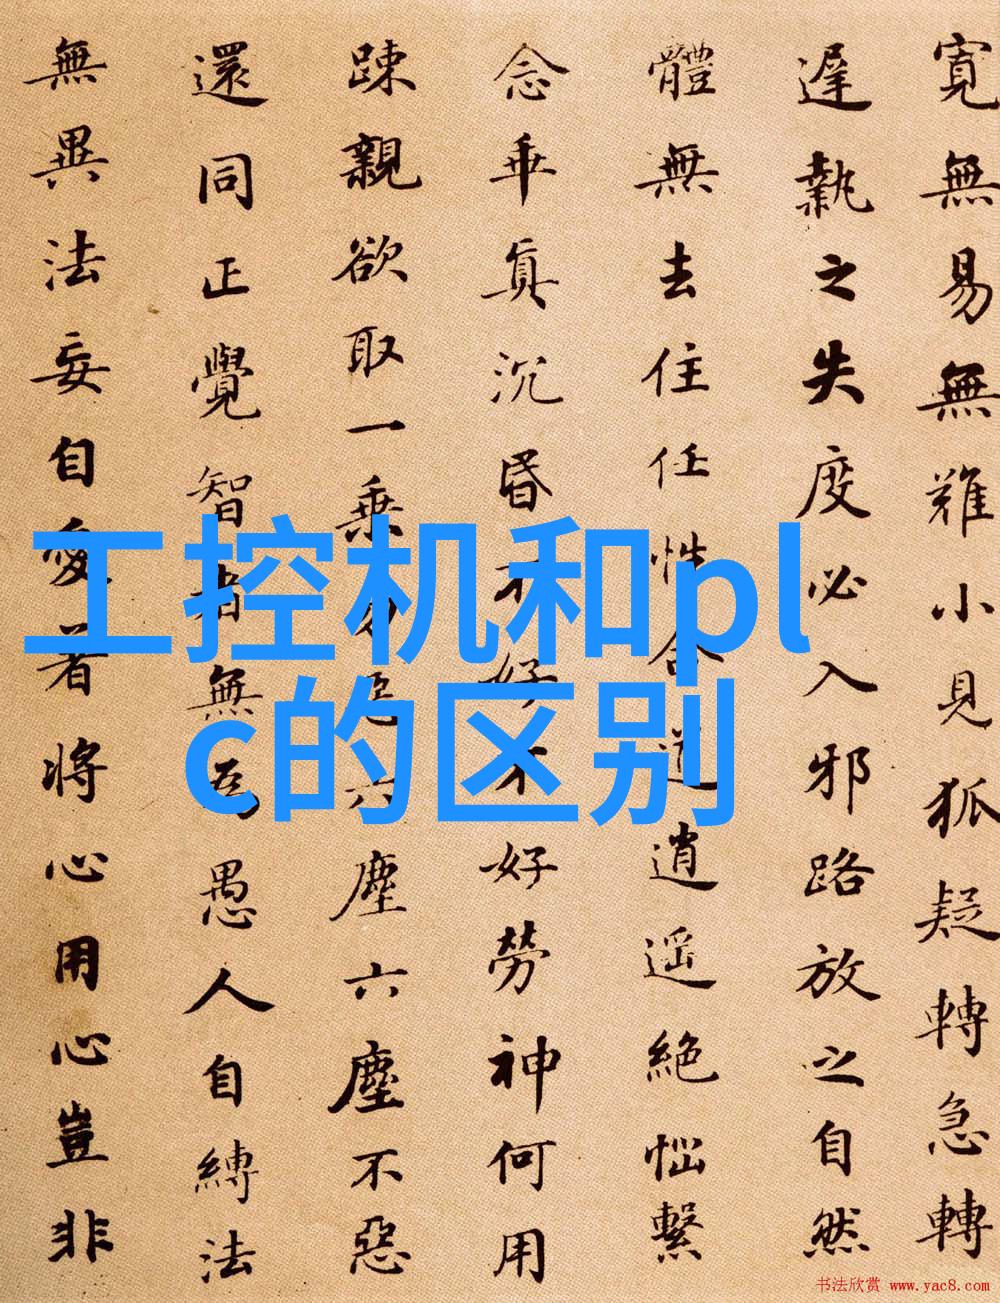 寛無易無難小見狐疑轉急轉
遲執之失度必入邪路放之自然
體無去住任性合道逍遥絶惱繫
念乖真沉昏不好不好勞神何用
踈親欲取一乘勿惡六塵六塵不惡
還同正覺智者無為愚人自縛法
無異法妄自愛著將心用心豈非
工控机和pl
c的区别
书法欣赏 www.yac8.com